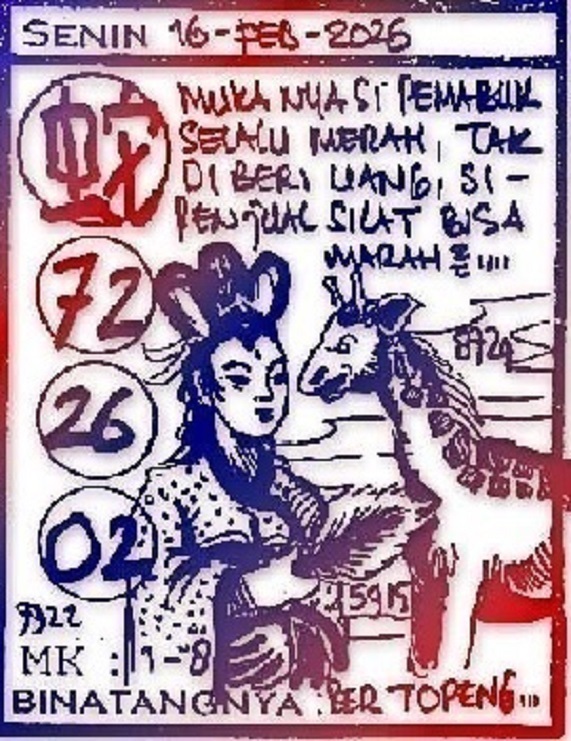 SENIN 16-FEB-2026
蛇
MUKA NYA SI PEMABUK
SELALU MERAH, TAK
DI BERI UANG, SI-
PENJUAL SILAT BISA
MARAH
72
26
02
8924
MK : 1-8
BINATANGNYA BER TOPENG...